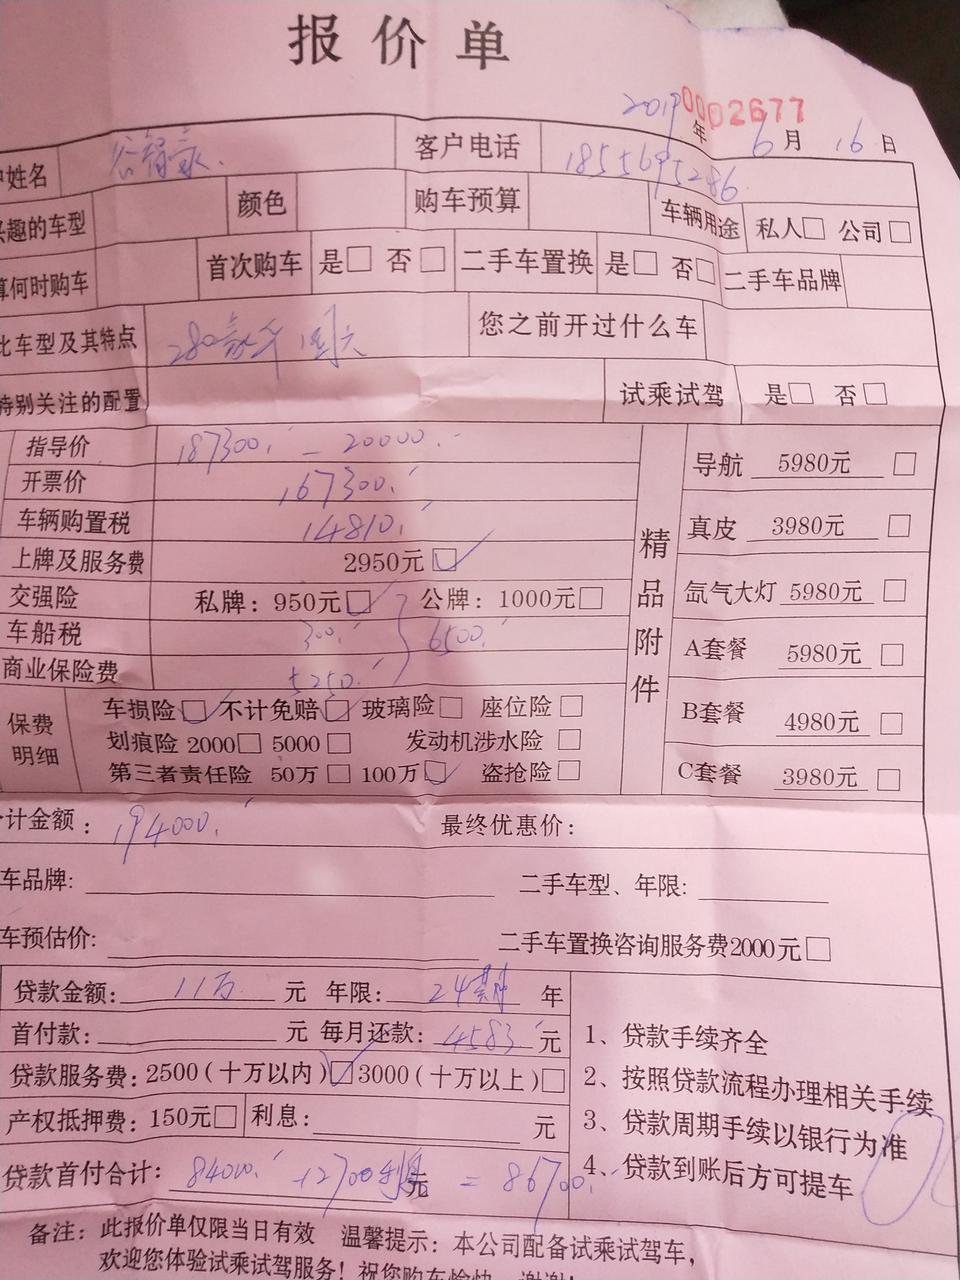 报价单
0002677
2019年6月16日
户姓名 客户电话 18556195286
兴趣的车型 颜色 购车预算 车辆用途 私人□ 公司□
算何时购车 首次购车 是□ 否□ 二手车置换 是□ 否□ 二手车品牌
比车型及其特点 280豪华 国六 您之前开过什么车
特别关注的配置 试乘试驾 是□ 否□
指导价 187300. - 20000.-
开票价 167300.
车辆购置税 14810.
上牌及服务费 2950元☑
交强险 私牌：950元☑ 公牌：1000元□
车船税 300. 6500.
商业保险费 5250.
保费明细
车损险☑ 不计免赔☑ 玻璃险□ 座位险□
划痕险 2000□ 5000□ 发动机涉水险□
第三者责任险 50万□ 100万☑ 盗抢险□
精品附件
导航 5980元□
真皮 3980元□
氙气大灯 5980元□
A套餐 5980元□
B套餐 4980元□
C套餐 3980元□
计金额：194000. 最终优惠价：
车品牌: 二手车型、年限:
车预估价: 二手车置换咨询服务费2000元□
贷款金额: 11万 元 年限: 24期 年
首付款: 元 每月还款: 4583 元
贷款服务费: 2500(十万以内)☑3000(十万以上)□
产权抵押费: 150元□ 利息: 元
贷款首付合计: 84000. +2700利息元 = 86700.
1、贷款手续齐全
2、按照贷款流程办理相关手续
3、贷款周期手续以银行为准
4、贷款到账后方可提车
备注：此报价单仅限当日有效 温馨提示：本公司配备试乘试驾车，
欢迎您体验试乘试驾服务！祝您购车愉快，谢谢！